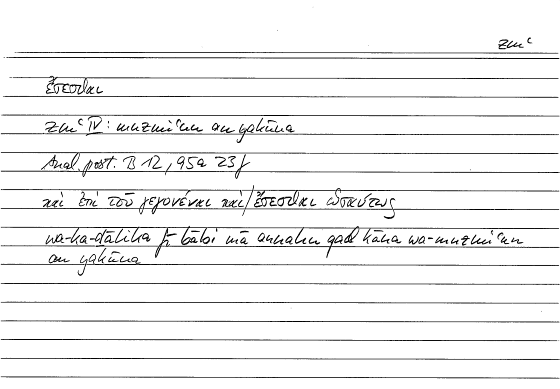 zmʿ
ἔσεσθαι
zmʿ IV: muzmiʿun an yakūna
Anal. post. B 12, 95a 23f
καὶ ἐπὶ τοῦ γεγονέναι καὶ/ἔσεσθαι ὡσαύτως
wa-ka-ḏālika fī bābi mā annahu qad kāna wa-muzmiʿun
an yakūna